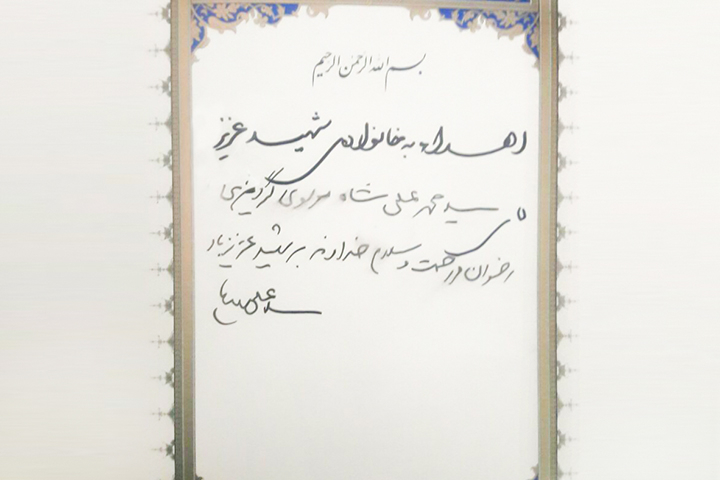 بسم الله الرحمن الرحیم
اهداء به خانواده‌ی شهید عزیز
سید محمد علی شاه موسوی گردیزی
رضوان و رحمت و سلام خداوند بر شهید عزیز باد
سید علی خامنه‌ای